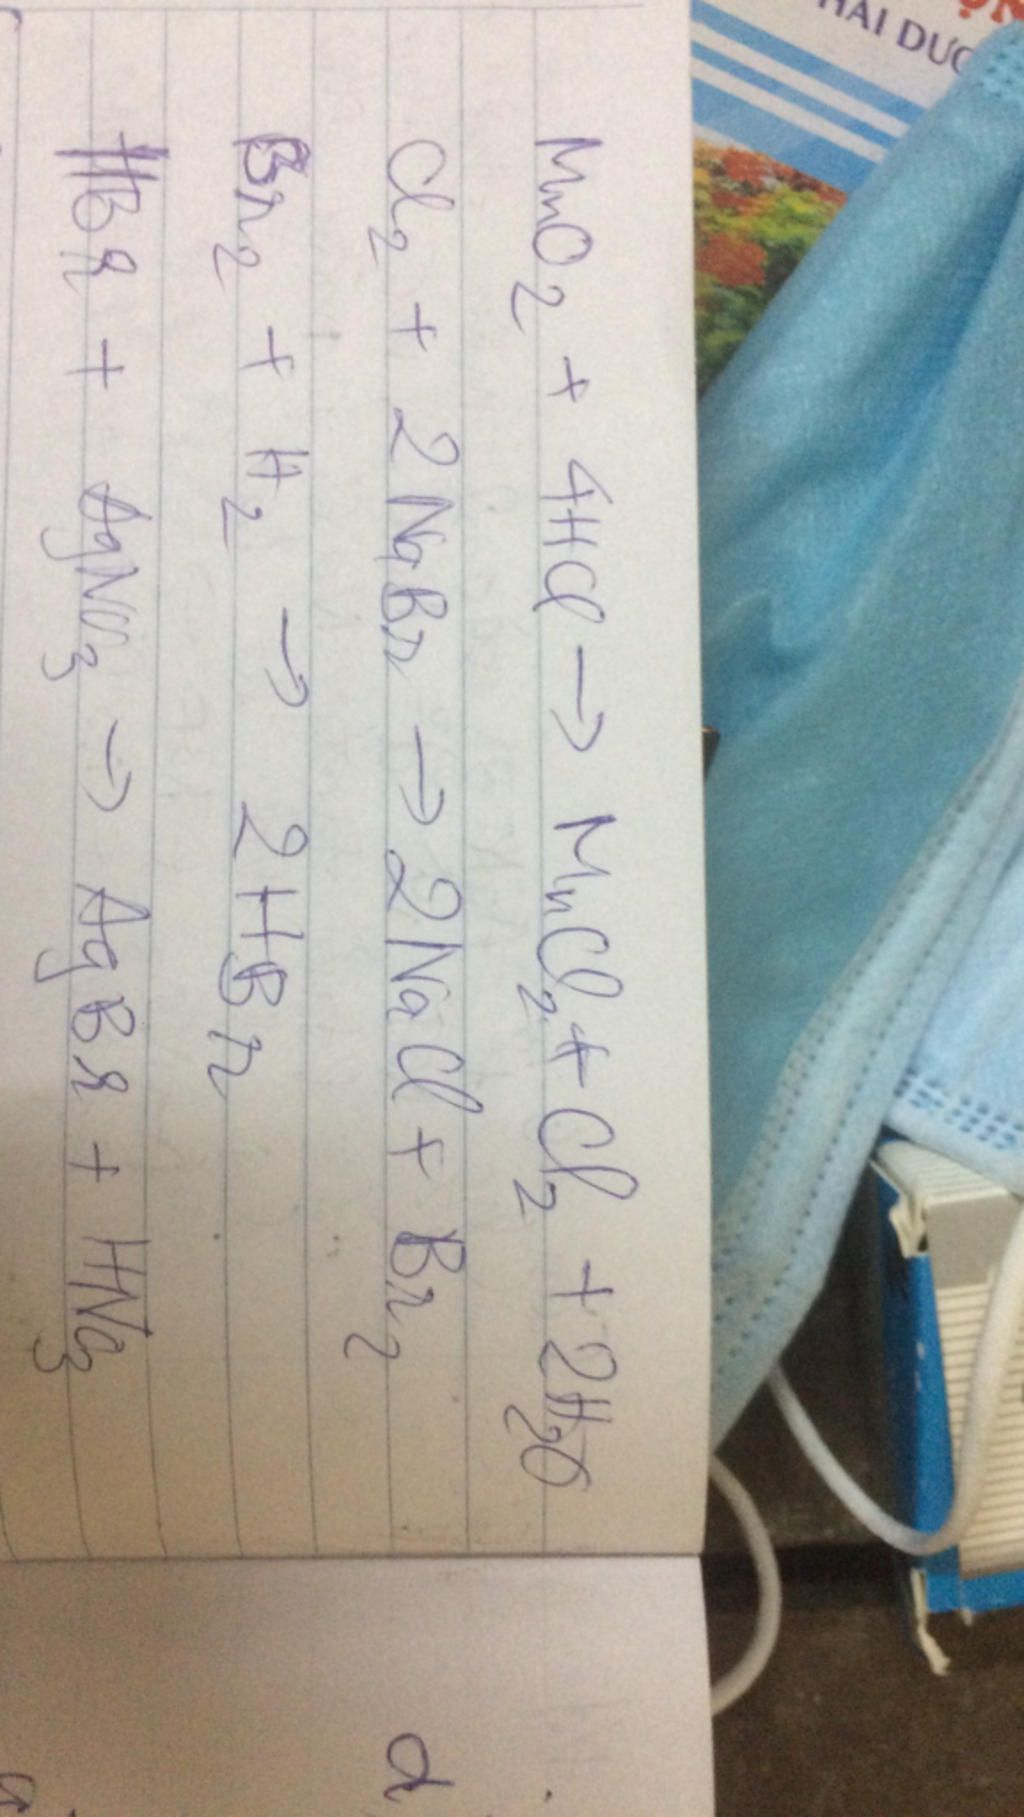 MnO₂ + 4HCl → MnCl₂ + Cl₂ + 2H₂O
Cl₂ + 2NaBr → 2NaCl + Br₂
Br₂ + H₂ → 2HBr
HBr + AgNO₃ → AgBr + HNO₃
HẢI DƯƠ
d